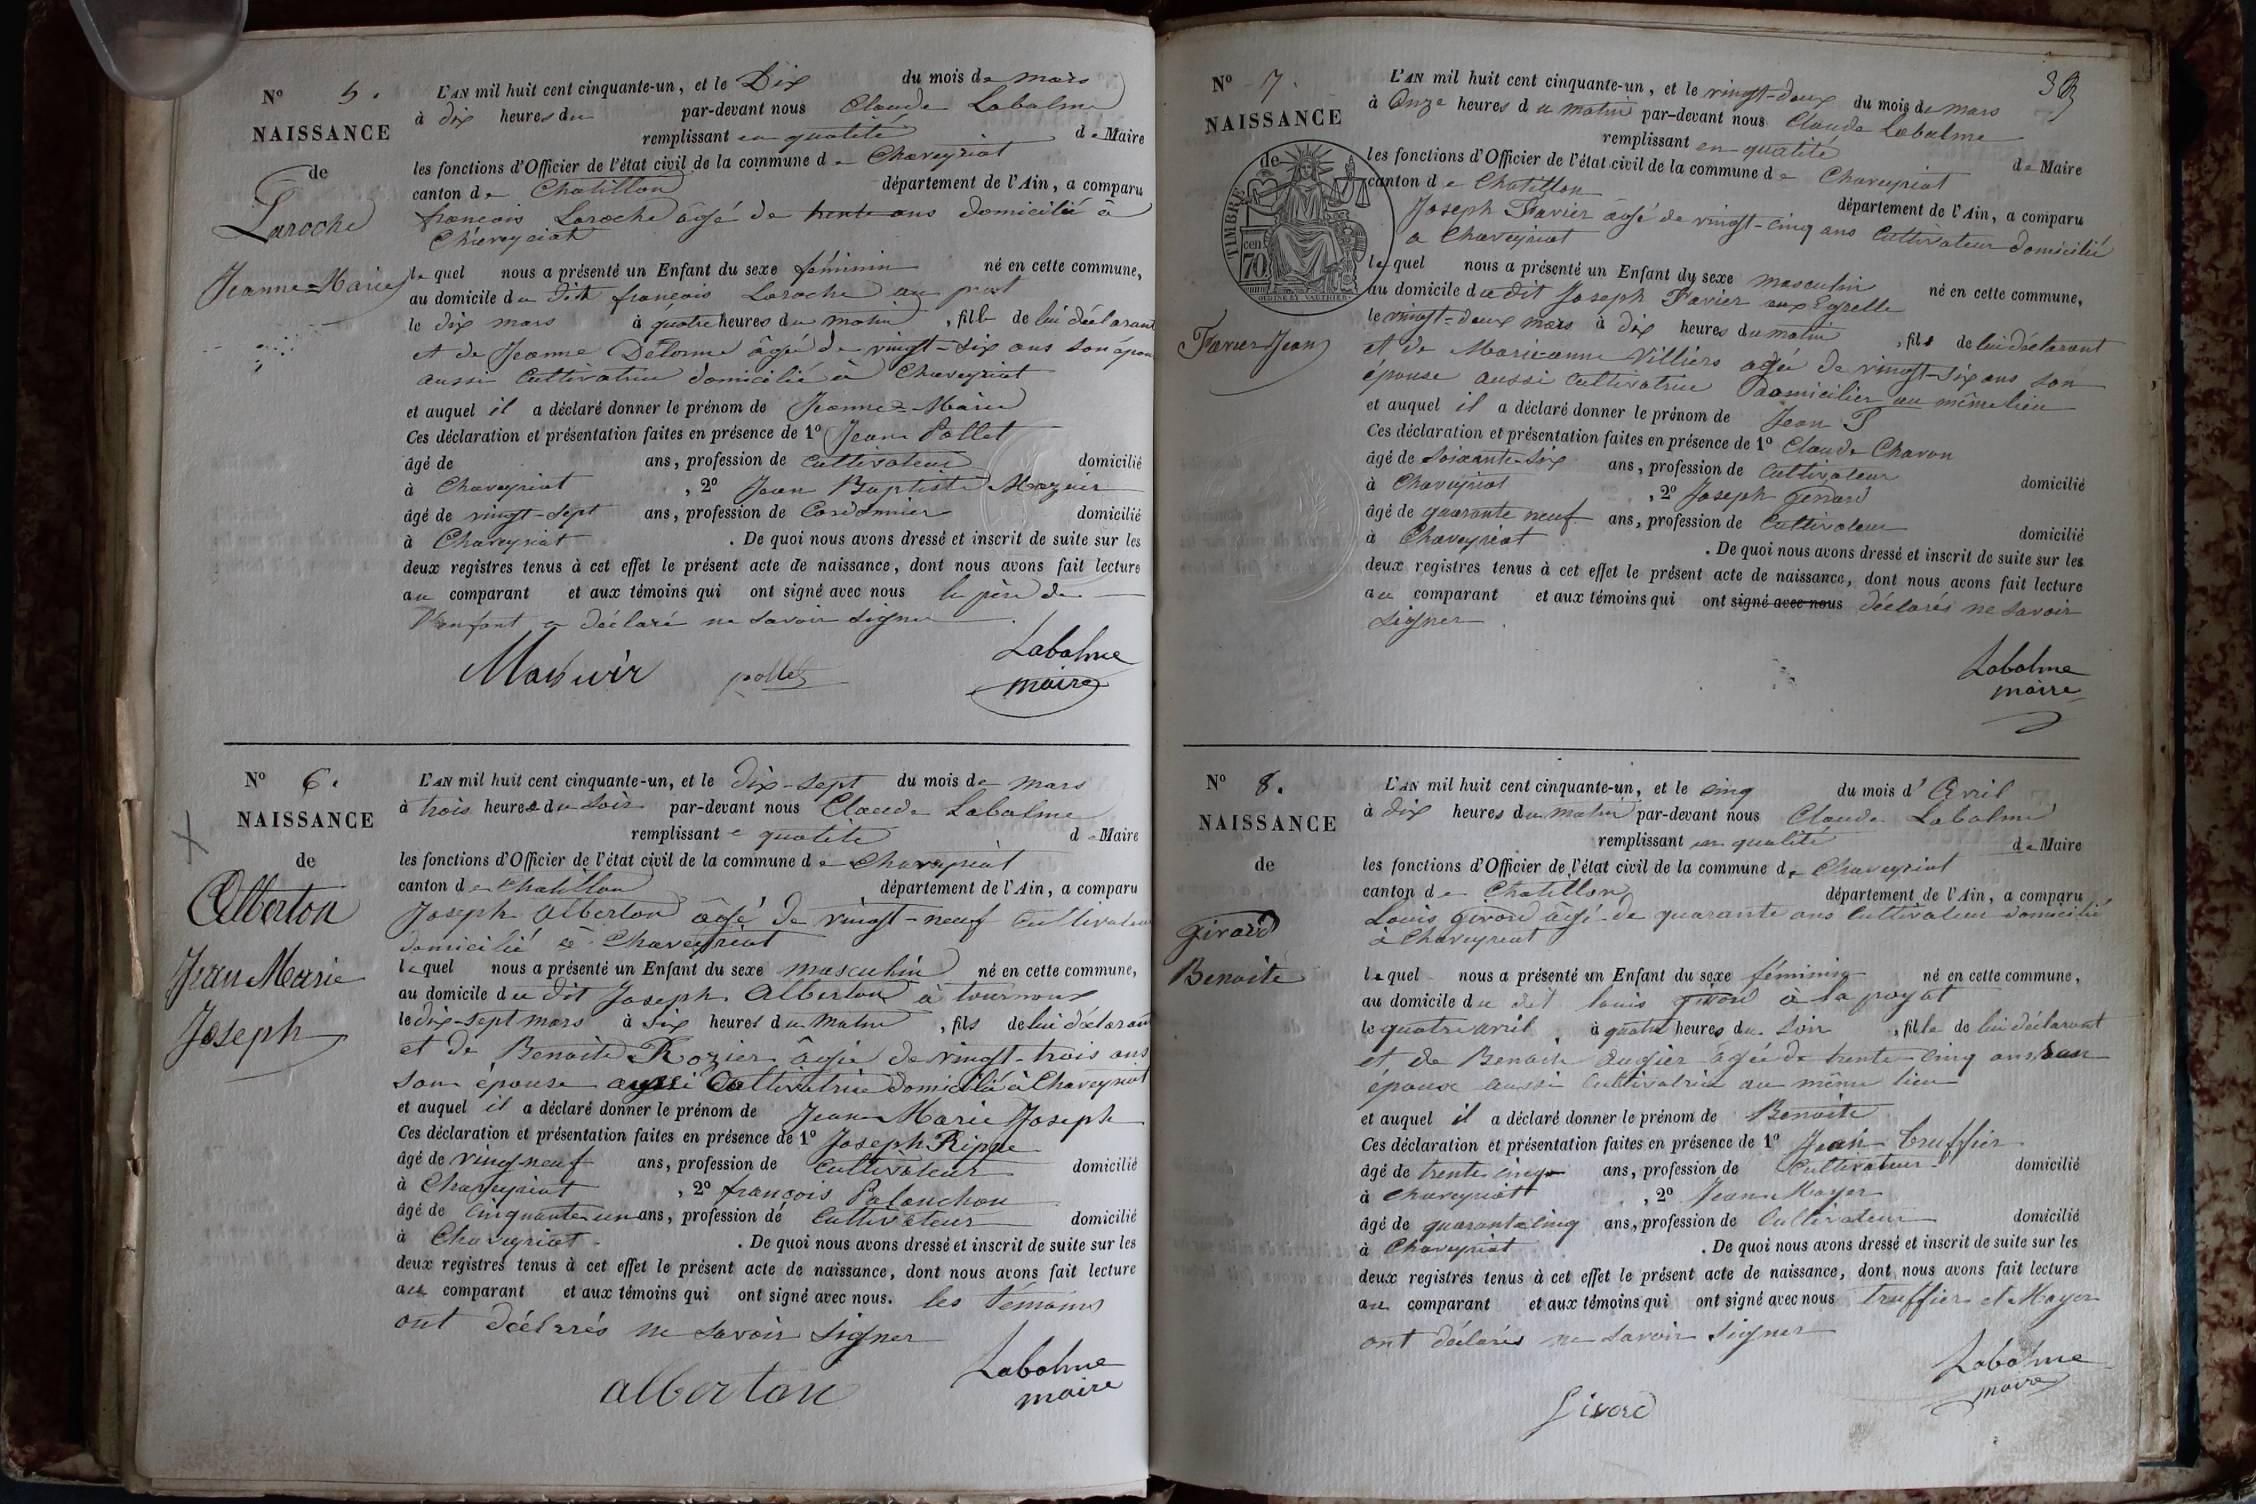 N° 5.
NAISSANCE
de
Laroche
Jeanne=Marie
L'AN mil huit cent cinquante-un, et le Dix du mois de mars
à dix heures du par-devant nous Claude Labalme
remplissant en qualité de Maire
les fonctions d'Officier de l'état civil de la commune de Chaveyriat
canton de Chatillon département de l'Ain, a comparu
françois Laroche âgé de trente ans domicilié à
Chaveyriat
lequel nous a présenté un Enfant du sexe féminin né en cette commune,
au domicile du dit françois Laroche au
le dix mars à quatre heures du matin, fille de lui déclarant
et de Jeanne Délorme âgé de vingt-six ans son épou
aussi Cultivatrice domicilié à Chaveyriat
et auquel il a déclaré donner le prénom de Jeanne=Marie
Ces déclaration et présentation faites en présence de 1° Jean Pollet
âgé de ans, profession de Cultivateur domicilié
à Chaveyriat, 2° Jean Baptiste Mazuir
âgé de vingt-sept ans, profession de Cordonnier domicilié
à Chaveyriat. De quoi nous avons dressé et inscrit de suite sur les
deux registres tenus à cet effet le présent acte de naissance, dont nous avons fait lecture
au comparant et aux témoins qui ont signé avec nous le père de
l'enfant a déclaré ne savoir signer
pollet Labalme
maire
N° 6.
NAISSANCE
de
Alberton
Jean Marie
Joseph
L'AN mil huit cent cinquante-un, et le dix-sept du mois de mars
à trois heures du soir par-devant nous Claude Labalme
remplissant e qualité de Maire
les fonctions d'Officier de l'état civil de la commune de Chaveyriat
canton de Chatillon département de l'Ain, a comparu
Joseph Alberton âgé de vingt-neuf Cultivateur
domicilié à Chaveyriat
lequel nous a présenté un Enfant du sexe masculin né en cette commune,
au domicile du dit Joseph Alberton à tournoux
le dix-sept mars à six heures du matin, fils de lui déclarant
et de Benoite Rozier âgée de vingt-trois ans
son épouse aussi Cultivatrice domicilié à Chaveyriat
et auquel il a déclaré donner le prénom de Jean Marie Joseph
Ces déclaration et présentation faites en présence de 1° Joseph Rippe
âgé de vingt neuf ans, profession de Cultivateur domicilié
à Chaveyriat, 2° françois Palanchon
âgé de cinquante un ans, profession de Cultivateur domicilié
à Chaveyriat. De quoi nous avons dressé et inscrit de suite sur les
deux registres tenus à cet effet le présent acte de naissance, dont nous avons fait lecture
au comparant et aux témoins qui ont signé avec nous. les témoins
ont déclarés ne savoir signer
alberton Labalme
maire
N° 7.
NAISSANCE
de
TIMBRE
cen
70
Favier Jean
L'AN mil huit cent cinquante-un, et le vingt-deux du mois de mars
à Onze heures du matin par-devant nous Claude Labalme
remplissant en qualité de Maire
les fonctions d'Officier de l'état civil de la commune de Chaveyriat
canton de Chatillon département de l'Ain, a comparu
Joseph Favier âgé de vingt-cinq ans Cultivateur domicilié
a Chaveyriat
lequel nous a présenté un Enfant du sexe masculin né en cette commune,
au domicile du dit Joseph Favier aux
le vingt-deux mars à dix heures du matin, fils de lui déclarant
et de Marieanne Villiers agée de vingt-six ans son
épouse aussi Cultivatrice domicilier au même lieu
et auquel il a déclaré donner le prénom de Jean
Ces déclaration et présentation faites en présence de 1° Claude Charon
âgé de soixante-six ans, profession de Cultivateur domicilié
à Chaveyriat, 2° Joseph
âgé de quarante neuf ans, profession de Cultivateur domicilié
à Chaveyriat. De quoi nous avons dressé et inscrit de suite sur les
deux registres tenus à cet effet le présent acte de naissance, dont nous avons fait lecture
au comparant et aux témoins qui ont signé avec nous déclarés ne savoir
signer.
Labalme
maire
N° 8.
NAISSANCE
de
girard
Benoite
L'AN mil huit cent cinquante-un, et le cinq du mois d'Avril
à dix heures du matin par-devant nous Claude Labalme
remplissant en qualité de Maire
les fonctions d'Officier de l'état civil de la commune de Chaveyriat
canton de Chatillon département de l'Ain, a comparu
Louis girard âgé de quarante ans Cultivateur domicilié
à Chaveyriat
lequel nous a présenté un Enfant du sexe féminin né en cette commune,
au domicile du dit louis girard à la poyat
le quatre avril à quatre heures du soir, fille de lui déclarant
et de Benoite augier âgée de trente-cinq ans son
épouse aussi Cultivatrice au même lieu
et auquel il a déclaré donner le prénom de Benoite
Ces déclaration et présentation faites en présence de 1° Jean truffier
âgé de trente cinq ans, profession de Cultivateur domicilié
à Chaveyriat, 2° Jean Mayer
âgé de quarante cinq ans, profession de Cultivateur domicilié
à Chaveyriat. De quoi nous avons dressé et inscrit de suite sur les
deux registres tenus à cet effet le présent acte de naissance, dont nous avons fait lecture
au comparant et aux témoins qui ont signé avec nous truffier et Mayer
ont déclarés ne savoir signer
Girard Labalme
maire